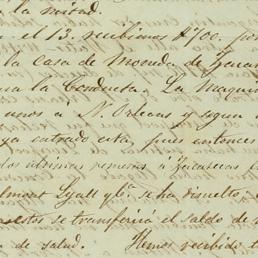 la mitad.
el 13. recibimos $700. por
la casa de Moneda de Zacan
la Conducta. La Maquin
unos à N. Orleans y segun
ya entrado esta, pues entonces
los ultimas remesas a Zacatecas
Lyall y Cª. se ha disuelto
se transferirá el saldo de
de salud. Hemos recibido t